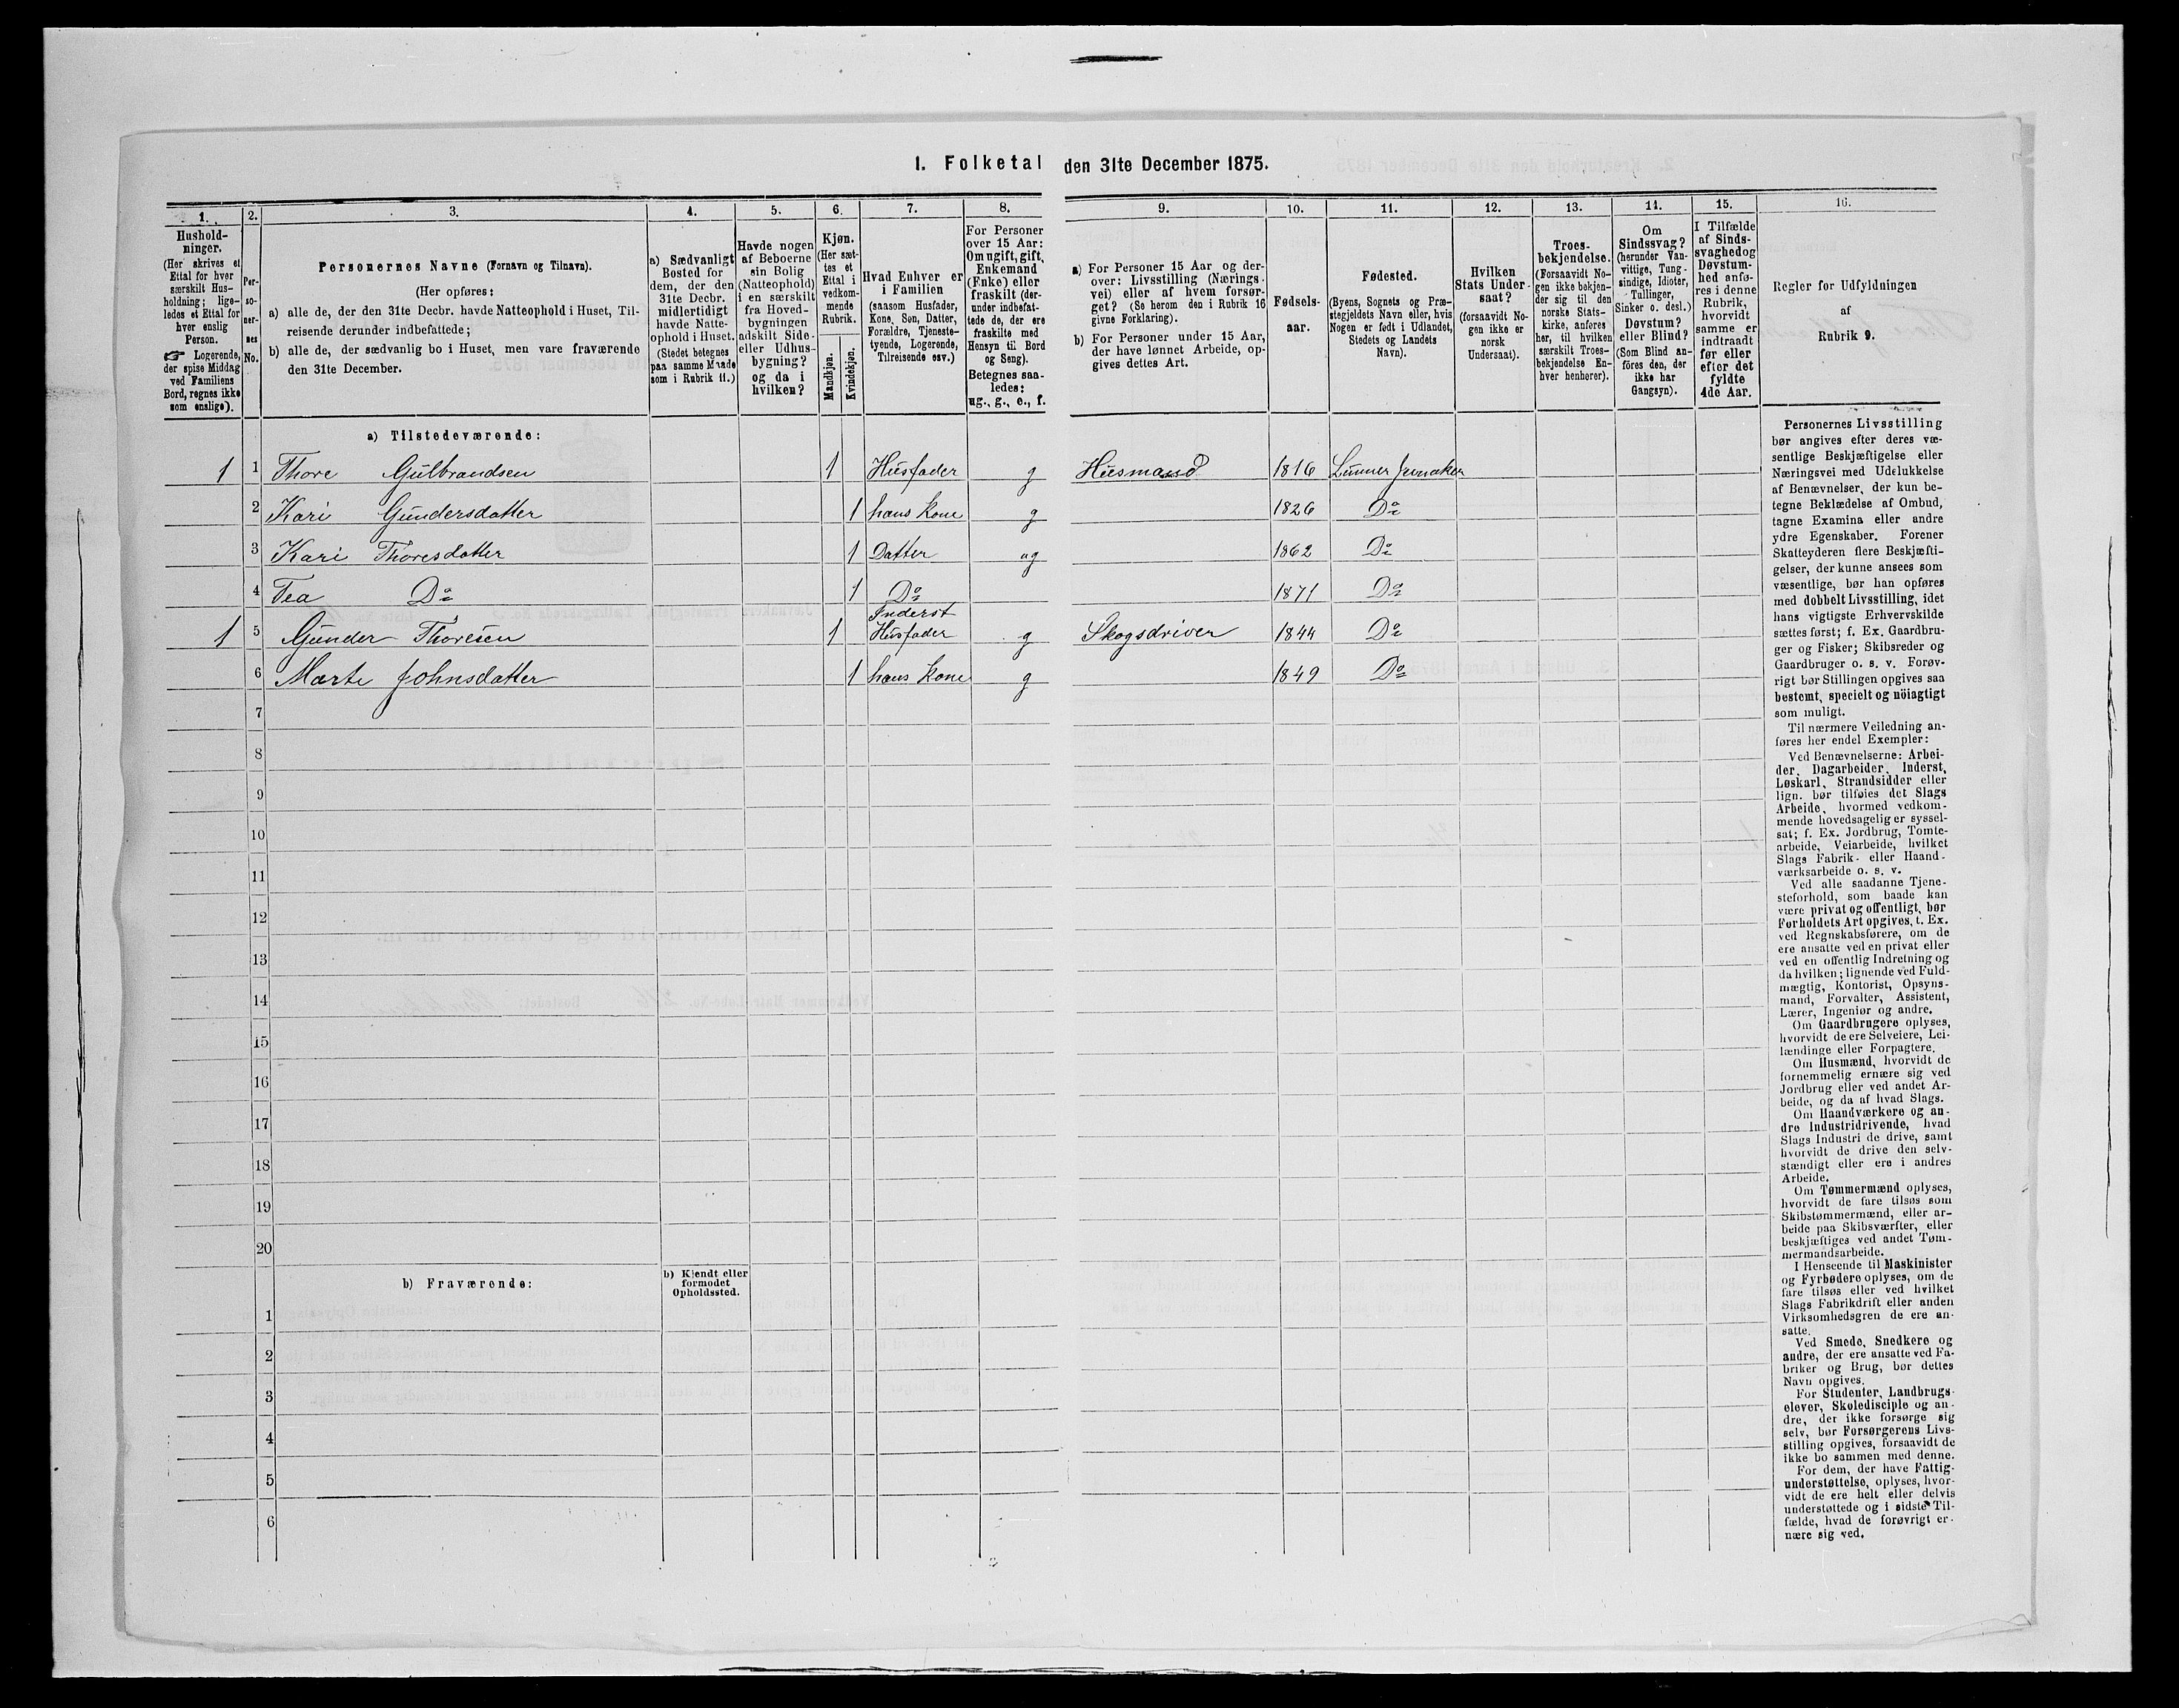 1. Folketal den 31te December 1875.
1. 2. 3. 4. 5. 6. 7. 8. 9. 10. 11. 12. 13. 14. 15. 16.
Hushold-
ninger.
(Her skrives et
Ettal for hver
særskilt Hus-
holdning; lige-
ledes et Ettal for
hver enslig
Person.
☞ Logerende,
der spise Middag
ved Familiens
Bord, regnes ikke
som enslige).
Per-
so-
ner-
nes
No.
Personernes Navne (Fornavn og Tilnavn).
(Her opføres:
a) alle de, der den 31te Decbr. havde Natteophold i Huset, Til-
reisende derunder indbefattede;
b) alle de, der sædvanlig bo i Huset, men vare fraværende
den 31te December.
a) Sædvanligt
Bosted for
dem, der den
31te Decbr.
midlertidigt
havde Natte-
ophold i Huset.
(Stedet betegnes
paa samme Maade
som i Rubrik 11.)
Havde nogen
af Beboerne
sin Bolig
(Natteophold)
i en særskilt
fra Hoved-
bygningen
adskilt Side-
eller Udhus-
bygning?
og da i
hvilken?
Kjøn.
(Her sæt-
tes et
Ettal i
vedkom-
mende
Rubrik.
Mandkjøn.
Kvindekjøn.
Hvad Enhver er
i Familien
(saasom Husfader,
Kone, Søn, Datter,
Forældre, Tjeneste-
tyende, Logerende,
Tilreisende osv.)
For Personer
over 15 Aar:
Om ugift, gift,
Enkemand
(Enke) eller
fraskilt (der-
under indbefat-
tede de, der ere
fraskilte med
Hensyn til Bord
og Seng).
Betegnes saa-
ledes:
ug., g., e., f.
a) For Personer 15 Aar og der-
over: Livsstilling (Nærings-
vei) eller af hvem forsør-
get? (Se herom den i Rubrik 16
givne Forklaring).
b) For Personer under 15 Aar,
der have lønnet Arbeide, op-
gives dettes Art.
Fødsels-
aar.
Fødested.
(Byens, Sognets og Præ-
stegjeldets Navn eller, hvis
Nogen er født i Udlandet,
Stedets og Landets
Navn).
Hvilken
Stats Under-
saat?
(forsaavidt No-
gen ikke er
norsk
Undersaat).
Troes-
bekjendelse.
(Forsaavidt No-
gen ikke bekjen-
der sig til den
norske Stats-
kirke, anføres
her, til hvilken
særskilt Troes-
bekjendelse En-
hver henhører).
Om
Sindssvag?
(herunder Van-
vittige, Tung-
sindige, Idioter,
Tullinger,
Sinker o. desl.)
Døvstum?
eller Blind?
(Som Blind an-
føres den, der
ikke har
Gangsyn).
I Tilfælde
af Sinds-
svaghed og
Døvstum-
hed anfø-
res i denne
Rubrik,
hvorvidt
samme er
indtraadt
før eller
efter det
fyldte
4de Aar.
Regler for Udfyldningen
af
Rubrik 9.
a) Tilstedeværende:
1 1 Thore Gulbrandsen 1 Husfader g Husmand 1816 Lunner Jevnaker
2 Kari Gundersdatter 1 hans Kone g 1826 Do
3 Kari Thoresdatter 1 Datter ug 1862 Do
4 Tea Do 1 Do 1871 Do
Inderst
1 5 Gunder Thoresen 1 Husfader g Skogsdriver 1844 Do
6 Marte Johnsdatter 1 hans Kone g 1849 Do
7
8
9
10
11
12
13
14
15
16
17
18
19
20
b) Fraværende:
b) Kjendt eller
formodet
Opholdssted.
1
2
3
4
5
6
Personernes Livsstilling
bør angives efter deres væ-
sentlige Beskjæftigelse eller
Næringsvei med Udelukkelse
af Benævnelser, der kun be-
tegne Beklædelse af Ombud,
tagne Examina eller andre
ydre Egenskaber. Forener
Skatteyderen flere Beskjæfti-
gelser, der kunne ansees som
væsentlige, bør han opføres
med dobbelt Livsstilling, idet
hans vigtigste Erhvervskilde
sættes først; f. Ex. Gaardbru-
ger og Fisker; Skibsreder og
Gaardbruger o. s. v. Forøv-
rigt bør Stillingen opgives saa
bestemt, specielt og nöiagtigt
som muligt.
Til nærmere Veiledning an-
føres her endel Exempler:
Ved Benævnelserne: Arbei-
der, Dagarbeider, Inderst,
Løskarl, Strandsidder eller
lign. bør tilføies det Slags
Arbeide, hvormed vedkom-
mende hovedsagelig er syssel-
sat; f. Ex. Jordbrug, Tomte-
arbeide, Veiarbeide, hvilket
Slags Fabrik- eller Haand-
værksarbeide o. s. v.
Ved alle saadanne Tjene-
steforhold, som baade kan
være privat og offentligt, bør
Forholdets Art opgives, t. Ex.
ved Regnskabsførere, om de
ere ansatte ved en privat eller
ved en offentlig Indretning og
da hvilken; lignende ved Fuld-
mægtig, Kontorist, Opsyns-
mand, Forvalter, Assistent,
Lærer, Ingeniør og andre.
Om Gaardbrugere oplyses,
hvorvidt de ere Selveiere, Lei-
lændinge eller Forpagtere.
Om Husmænd, hvorvidt de
fornemmelig ernære sig ved
Jordbrug eller ved andet Ar-
beide, og da af hvad Slags.
Om Haandværkere og an-
dre Industridrivende, hvad
Slags Industri de drive, samt
hvorvidt de drive den selv-
stændigt eller ere i andres
Arbeide.
Om Tømmermænd oplyses,
hvorvidt de fare tilsøs som
Skibstømmermænd, eller ar-
beide paa Skibsværfter, eller
beskjæftiges ved andet Tøm-
mermandsarbeide.
I Henseende til Maskinister
og Fyrbødere oplyses, om de
fare tilsøs eller ved hvilket
Slags Fabrikdrift eller anden
Virksomhedsgren de ere an-
satte.
Ved Smede, Snedkere og
andre, der ere ansatte ved Fa-
briker og Brug, bør dettes
Navn opgives.
For Studenter, Landbrugs-
elever, Skoledisciple og an-
dre, der ikke forsørge sig
selv, bør Forsørgerens Livs-
stilling opgives, forsaavidt de
ikke bo sammen med denne.
For dem, der have Fattig-
understøttelse, oplyses, hvor-
vidt de ere helt eller delvis
understøttede og i sidste Til-
fælde, hvad de forøvrigt er-
nære sig ved.